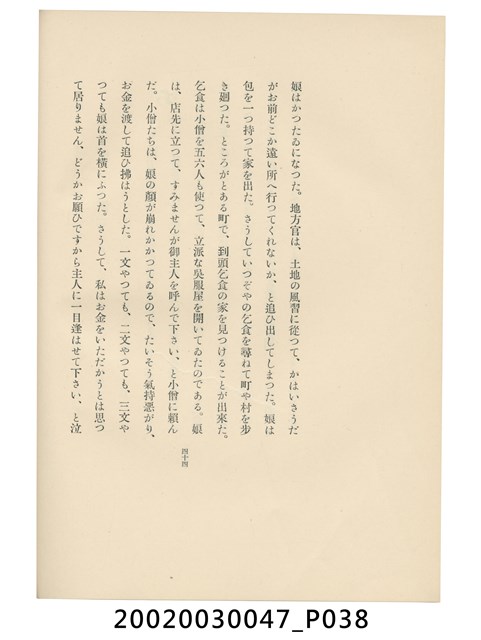 娘はかつたゐになつた。地方官は、土地の風習に從つて、かはいさうだ
がお前どこか遠い所へ行つてくれないか、と追ひ出してしまつた。娘は
包を一つ持つて家を出た。さうしていつぞやの乞食を尋ねて町や村を步
き廻つた。ところがとある町で、到頭乞食の家を見つけることが出來た。
乞食は小僧を五六人も使つて、立派な吳服屋を開いてゐたのである。娘
は、店先に立つて、すみませんが御主人を呼んで下さい、と小僧に賴ん
だ。小僧たちは、娘の顏が崩れかかつてゐるので、たいそう氣持惡がり、
お金を渡して追ひ拂はうとした。一文やつても、二文やつても、三文や
つても娘は首を橫にふつた。さうして、私はお金をいただかうとは思つ
て居りません、どうかお願ひですから主人に一目逢はせて下さい、と泣
四十四
20020030047_P038